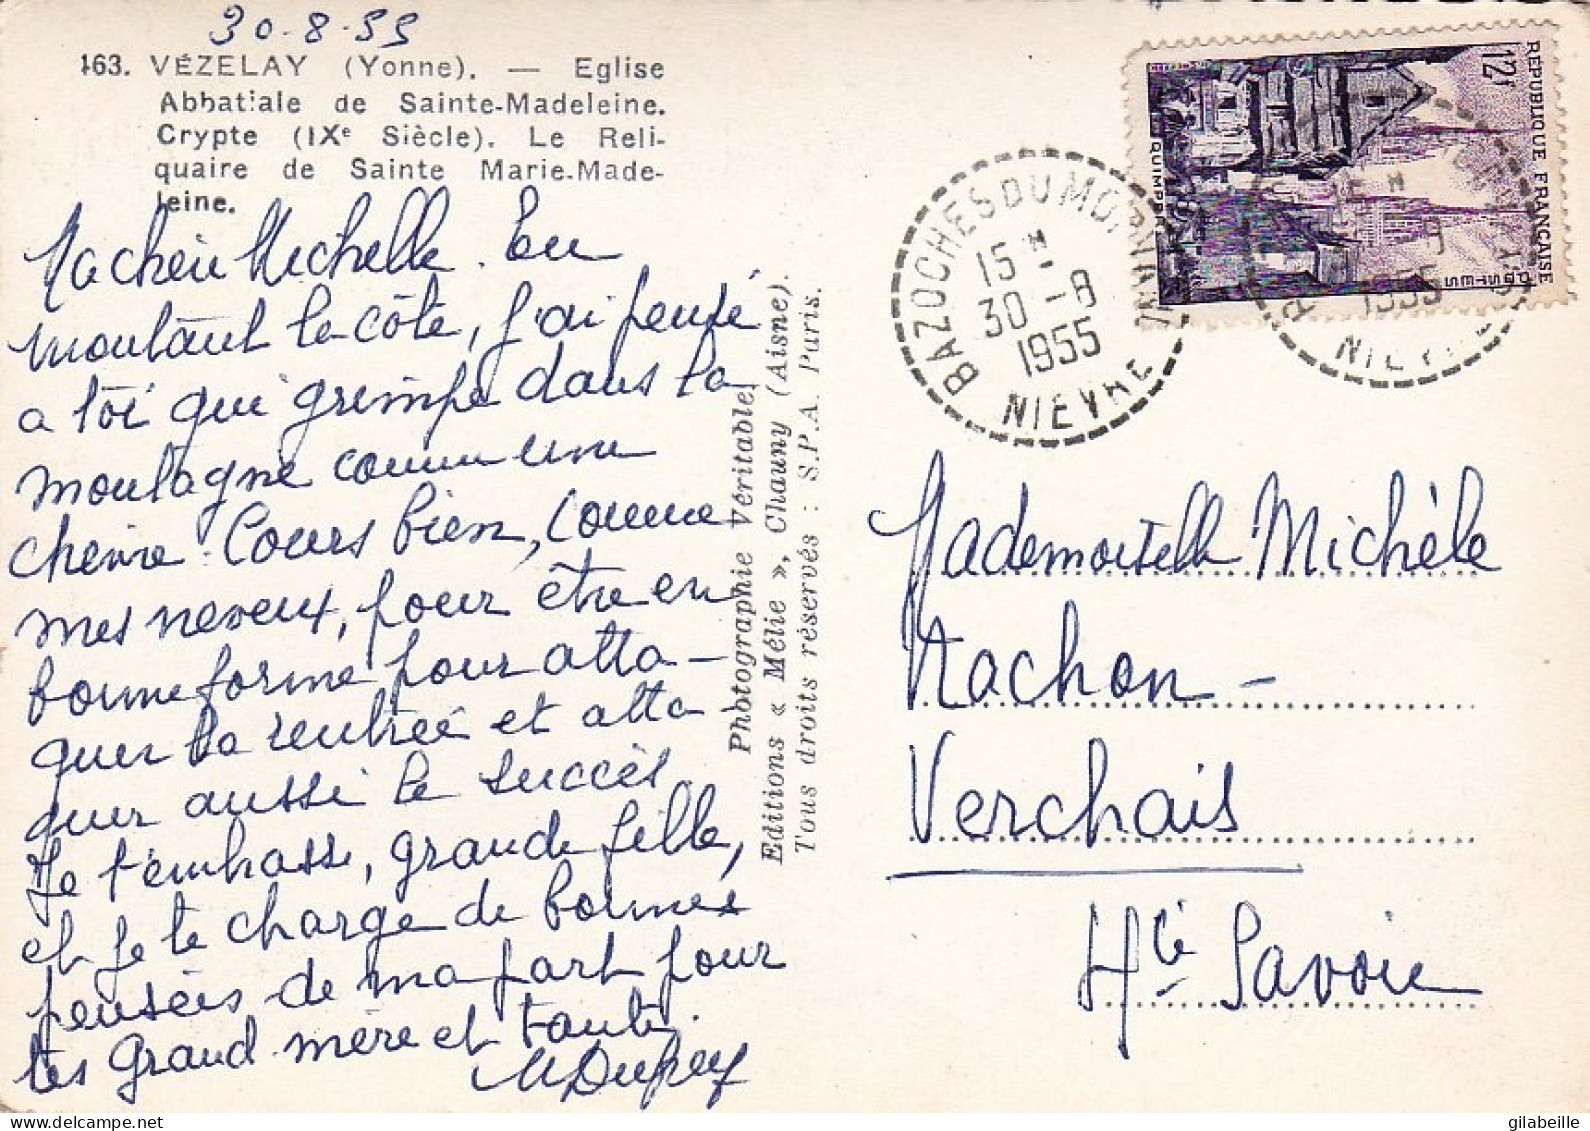 30-8-55
163. VÉZELAY (Yonne). — Eglise
Abbatiale de Sainte-Madeleine.
Crypte (IXe Siècle). Le Reli-
quaire de Sainte Marie-Made-
leine.
Ma chère Michelle. En
montant la côte, j'ai pensé
a toi qui grimpe dans la
montagne comme une
chèvre. Cours bien, comme
mes neveux, pour être en
bonne forme pour atta-
quer la rentrée et atta-
quer aussi le succès.
Je t'embrasse, grande fille,
et je te charge de bonnes
pensées de ma part pour
tes Grand-mère et tante.
Photographie Véritable.
Editions « Mélie », Chauny (Aisne).
Tous droits réservés : S.P.A. Paris.
RÉPUBLIQUE FRANÇAISE
12f
POSTES
QUIMPER
BAZOCHES DU MORVAN
15 H
30 -8
1955
NIEVRE
1955
NIEVRE
Mademoiselle Michèle
Nachon -
Verchais
Hte Savoie
gilabeille